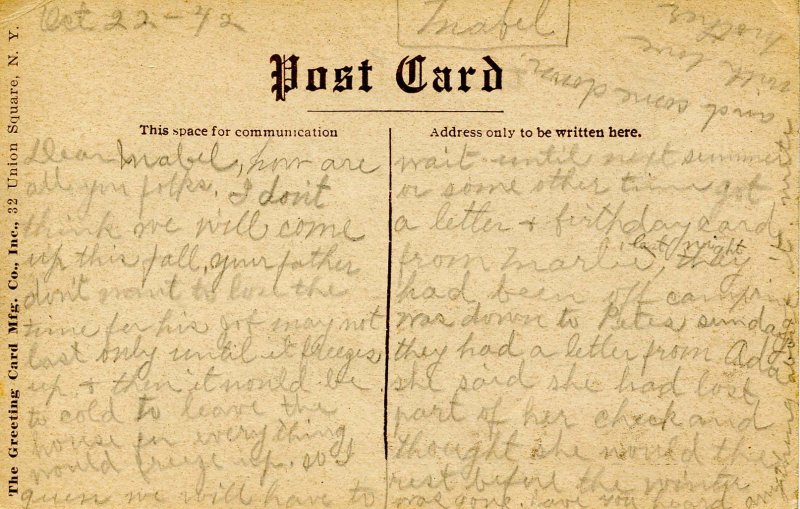 Oct 22-42
Mabel
Post Card
This space for communication
Address only to be written here.
The Greeting Card Mfg. Co., Inc., 32 Union Square, N. Y.
Dear Mabel, how are
all you folks. I don't
think we will come
up this fall, your father
don't want to lose the
time for his jof may not
last only until it freezes
up + then it would be
to cold to leave the
house en everything
would freeze up. so I
guess we will have to
wait until next summer
or some other time got
a letter + birthday card
from Marlie, last night they
had been off camping
was down to Petes sunday
they had a letter from Ada
she said she had lost
part of her check and
thought she would the
rest before the winter
was gone. have you heard
and some
with love
mother